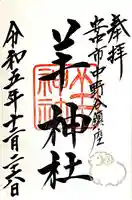 奉拝
安中市中野谷鎮座
羊神社
令和五年十二月二十六日